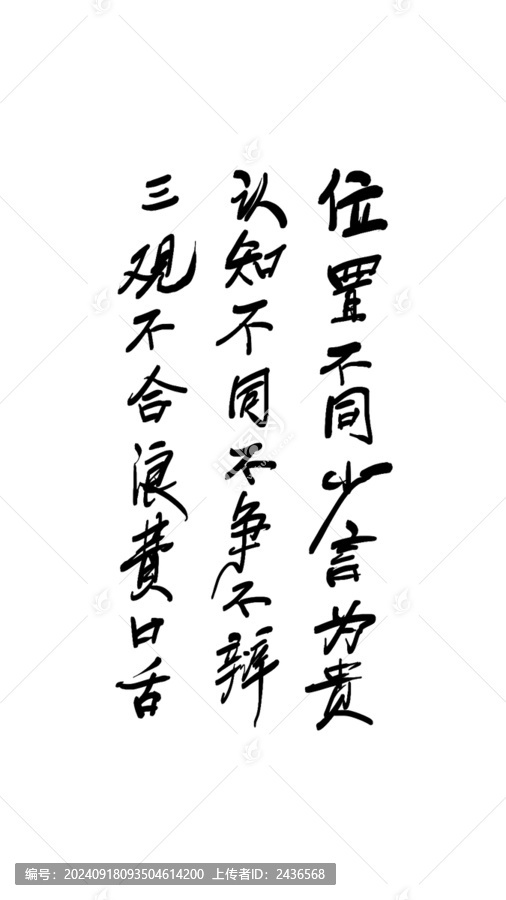 位置不同少言为贵
认知不同不争不辩
三观不合浪費口舌
编号：20240918093504614200 上传者ID：2436568